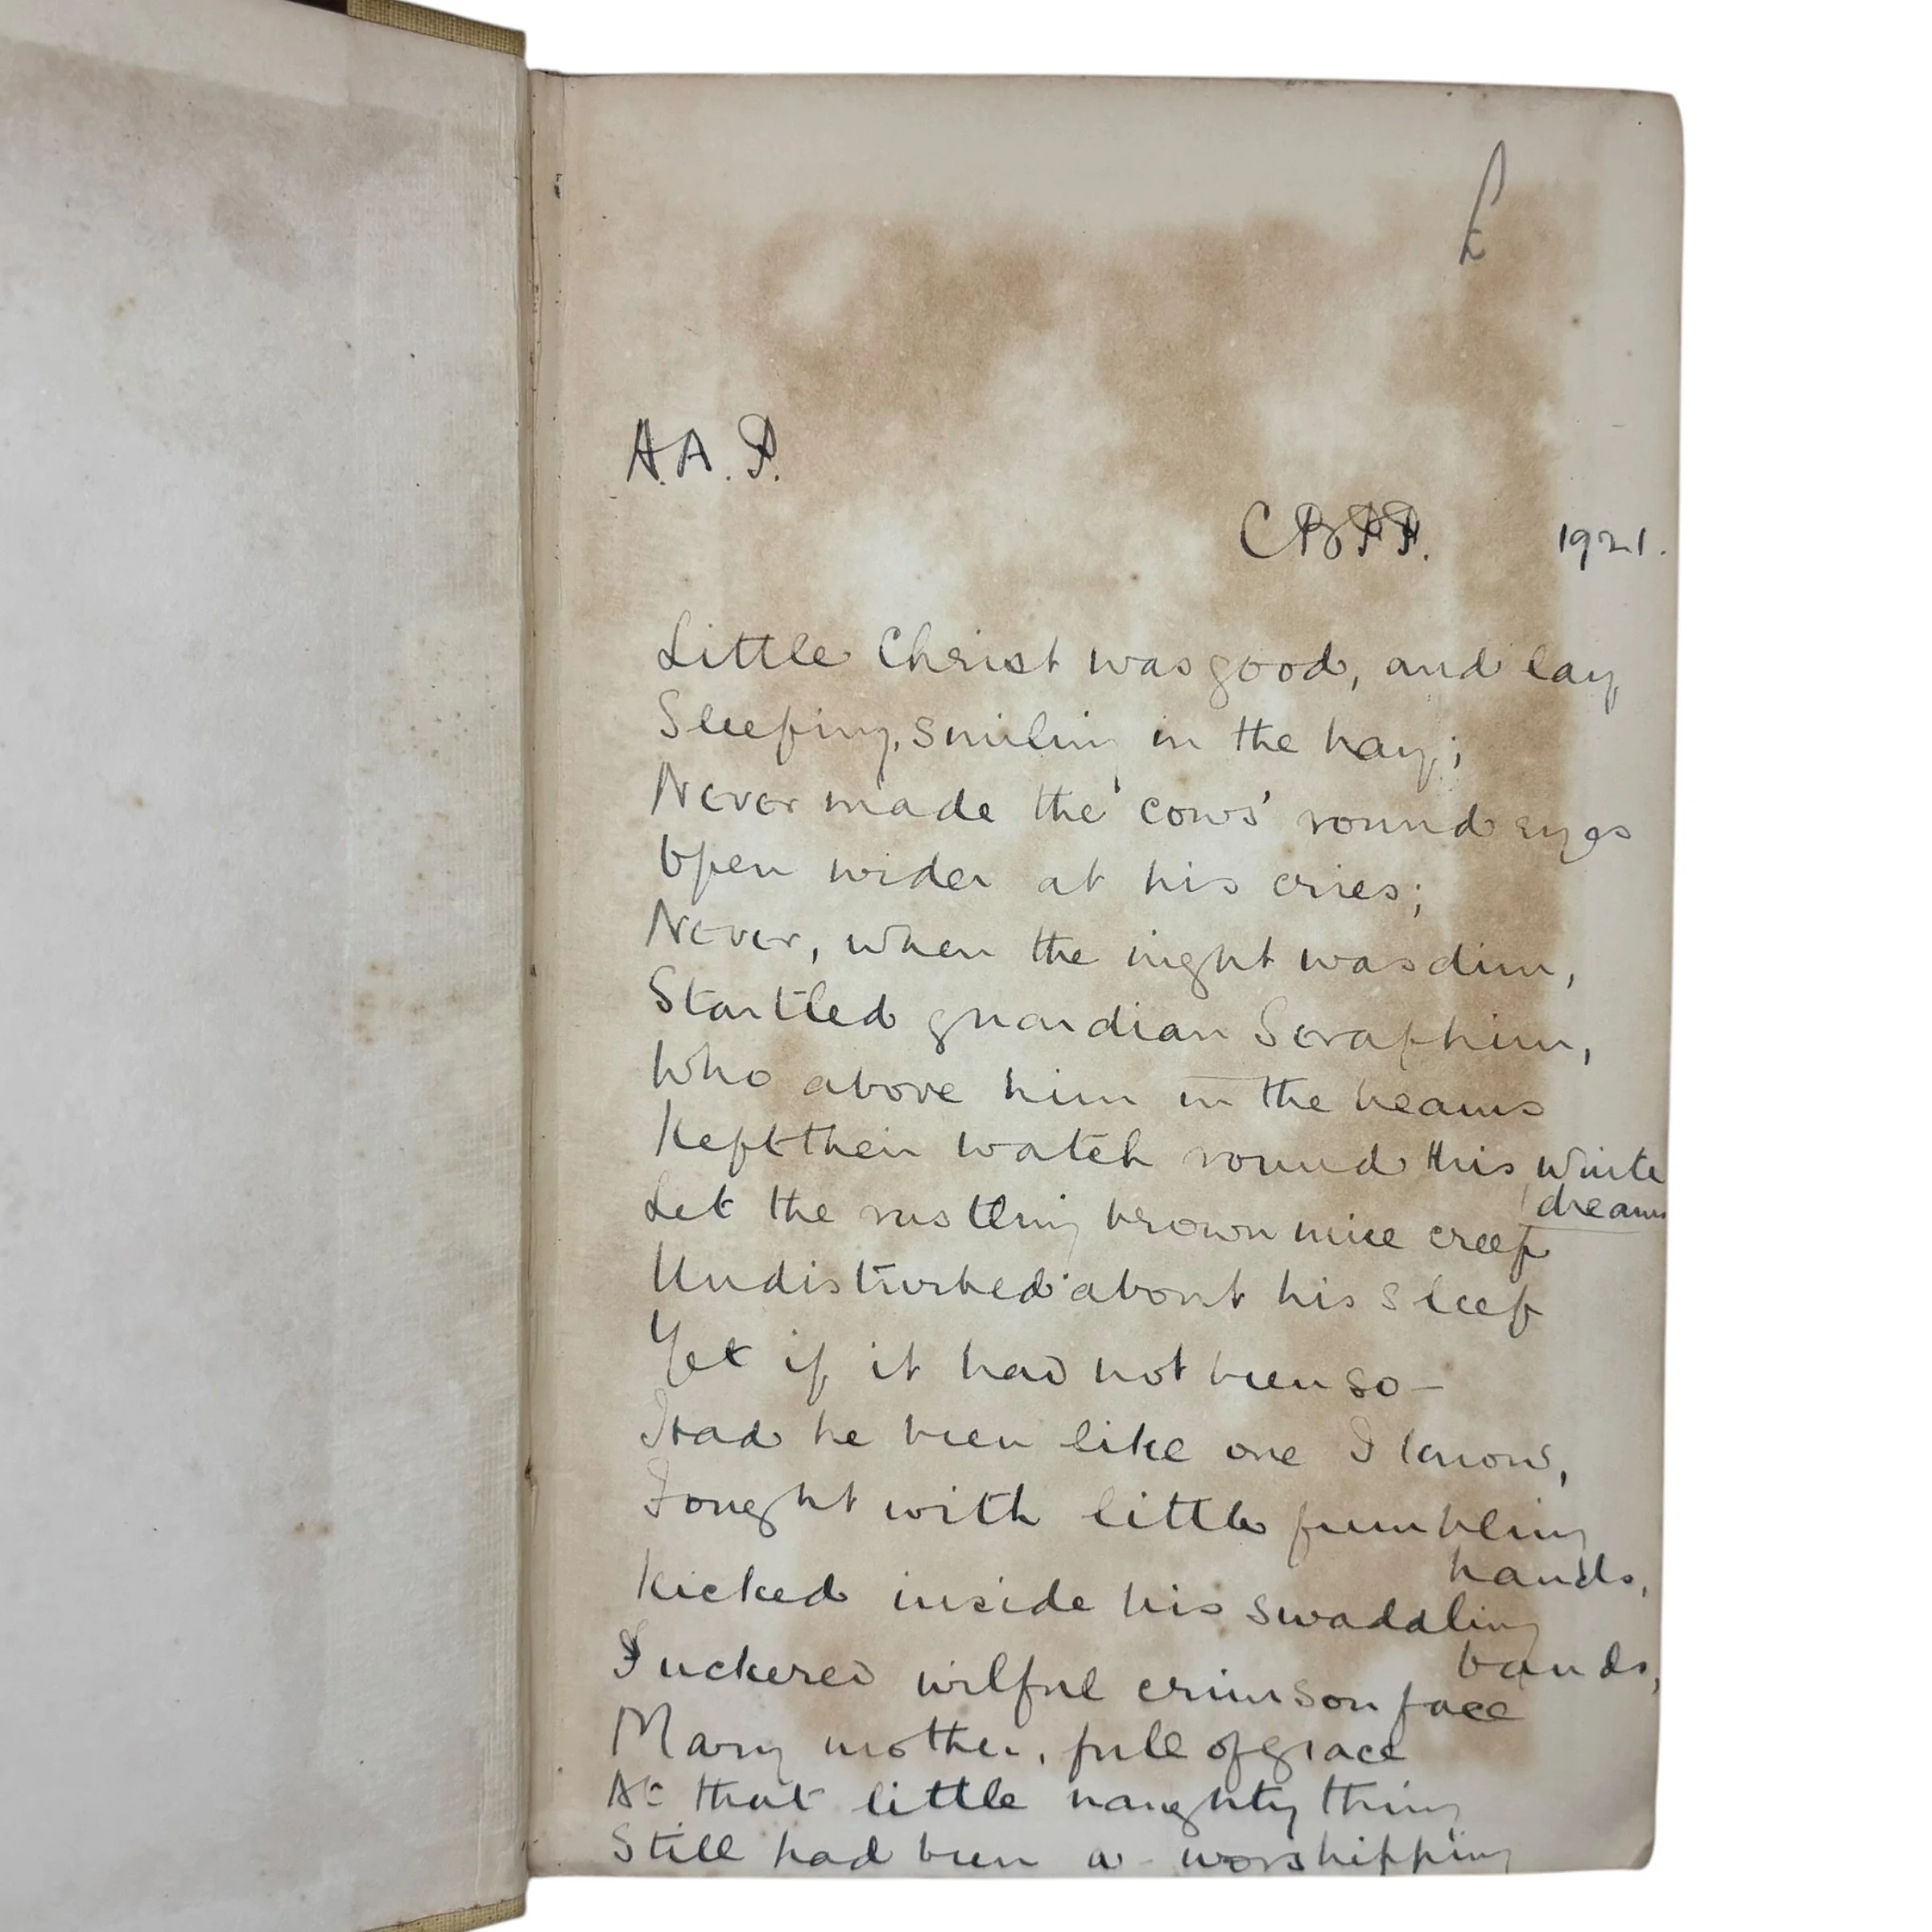 £
A.A.P.
C.B.F.P. 1921.
Little Christ was good, and lay
Sleeping, smiling in the hay;
Never made the cows' round eyes
Open wider at his cries;
Never, when the night was dim,
Startled guardian Seraphim,
Who above him in the beams
Kept their watch round this white
dreams
Let the rustling brown mice creep
Undisturbed about his sleep
Yet if it had not been so—
Had he been like one I know,
Fought with little fumbling
hands,
Kicked inside his swaddling
bands,
Puckered wilful crimson face
Mary mother, full of grace
At that little naughty thing
Still had been a-worshipping